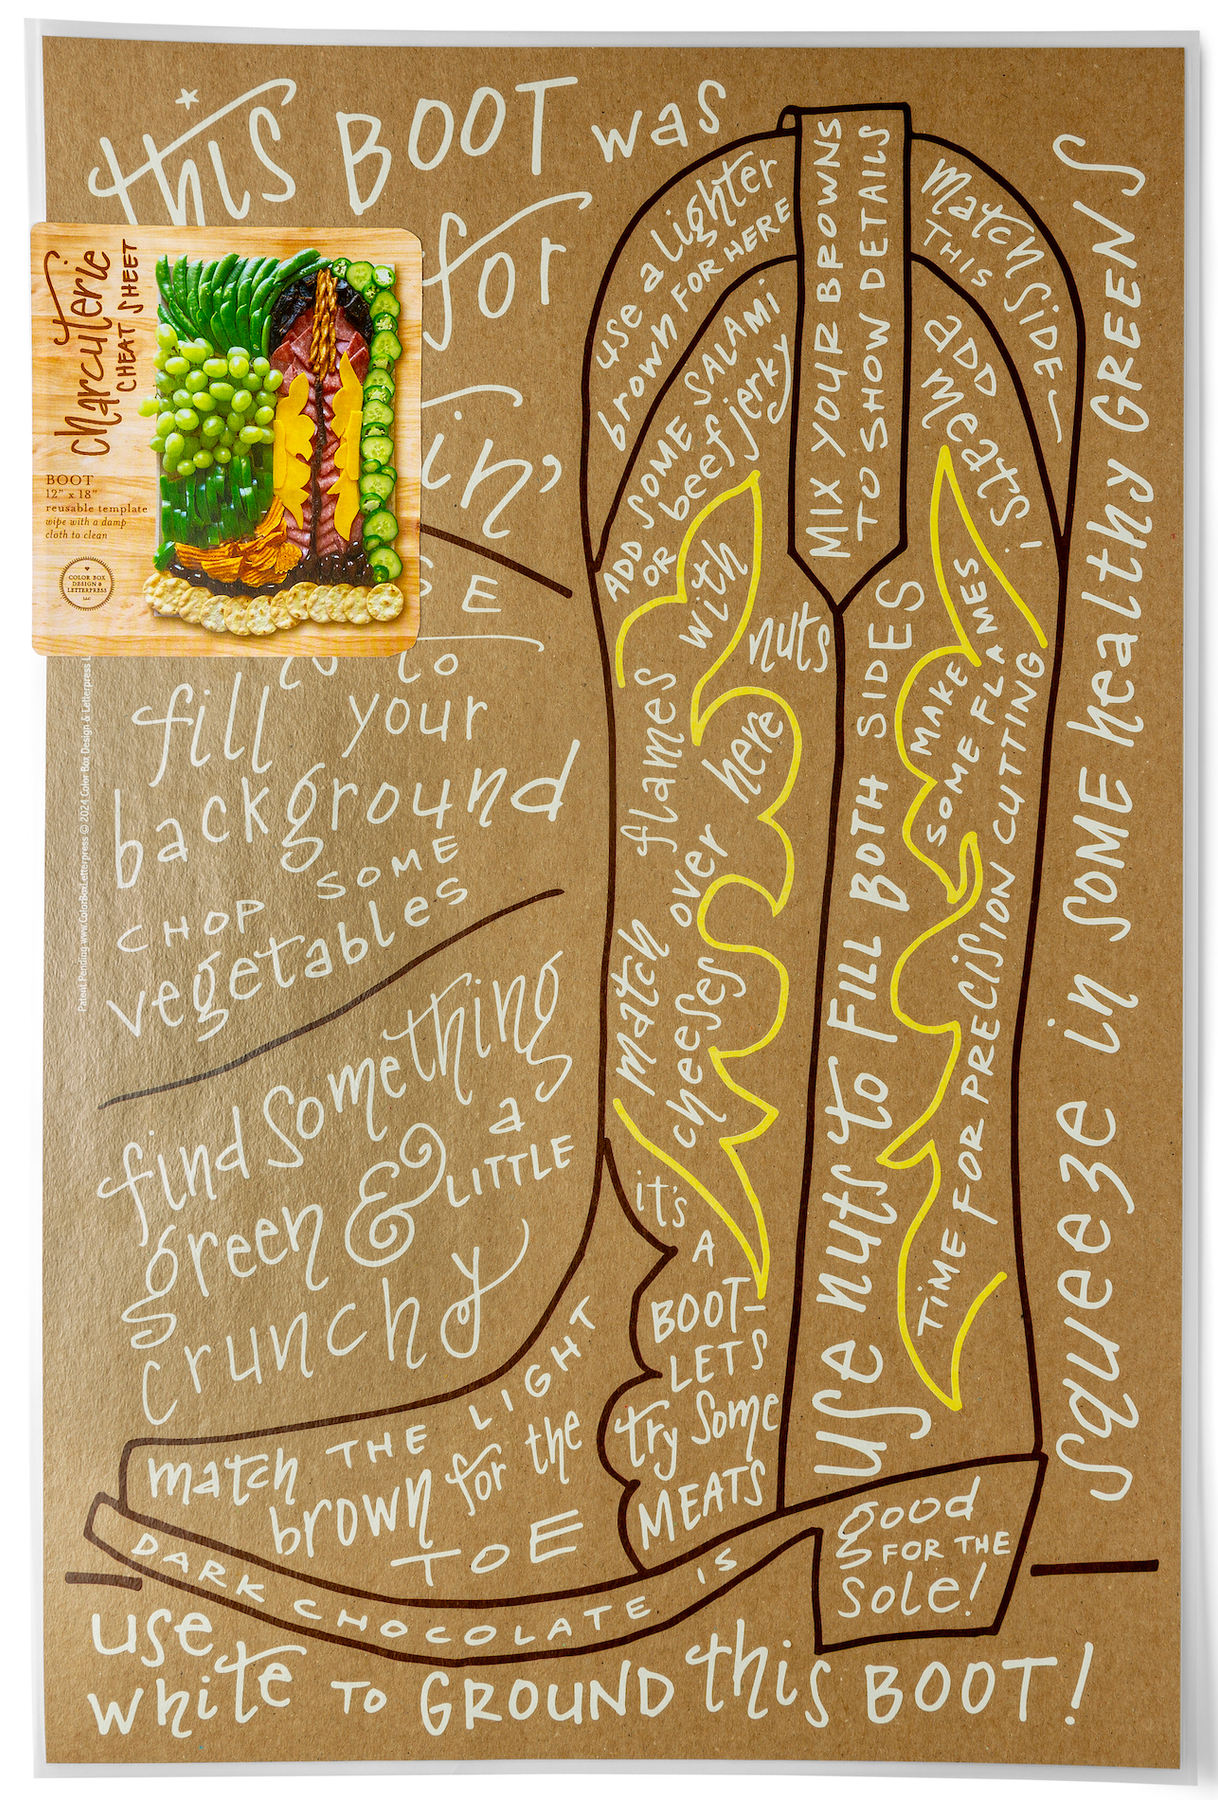 this BOOT was
for
in'
SE
to
fill your
background
CHOP SOME
vegetables
find something
green & a LITTLE
crunchy
charcuterie
CHEAT SHEET
BOOT
12" x 18"
reusable template
wipe with a damp
cloth to clean
COLOR BOX
DESIGN &
LETTERPRESS
LLC
Patent Pending www.ColorBoxLetterpress © 2024 Color Box Design & Letterpress L
use a lighter
brown FOR HERE
MIX YOUR BROWNS
TO SHOW DETAILS
match
THIS SIDE
ADD SOME SALAMI
OR beef jerky
ADD
meats!
with nuts
here
match flames
cheeses over
USE nuts to FILL BOTH SIDES
MAKE
SOME FLAMES
TIME FOR PRECISION CUTTING
squeeze in SOME healthy GREENS
it's
A
BOOT-
LETS
try some
MEATS
match THE LIGHT
brown for the
TOE
DARK CHOCOLATE IS
good
FOR THE
sole!
use
white TO GROUND this BOOT!